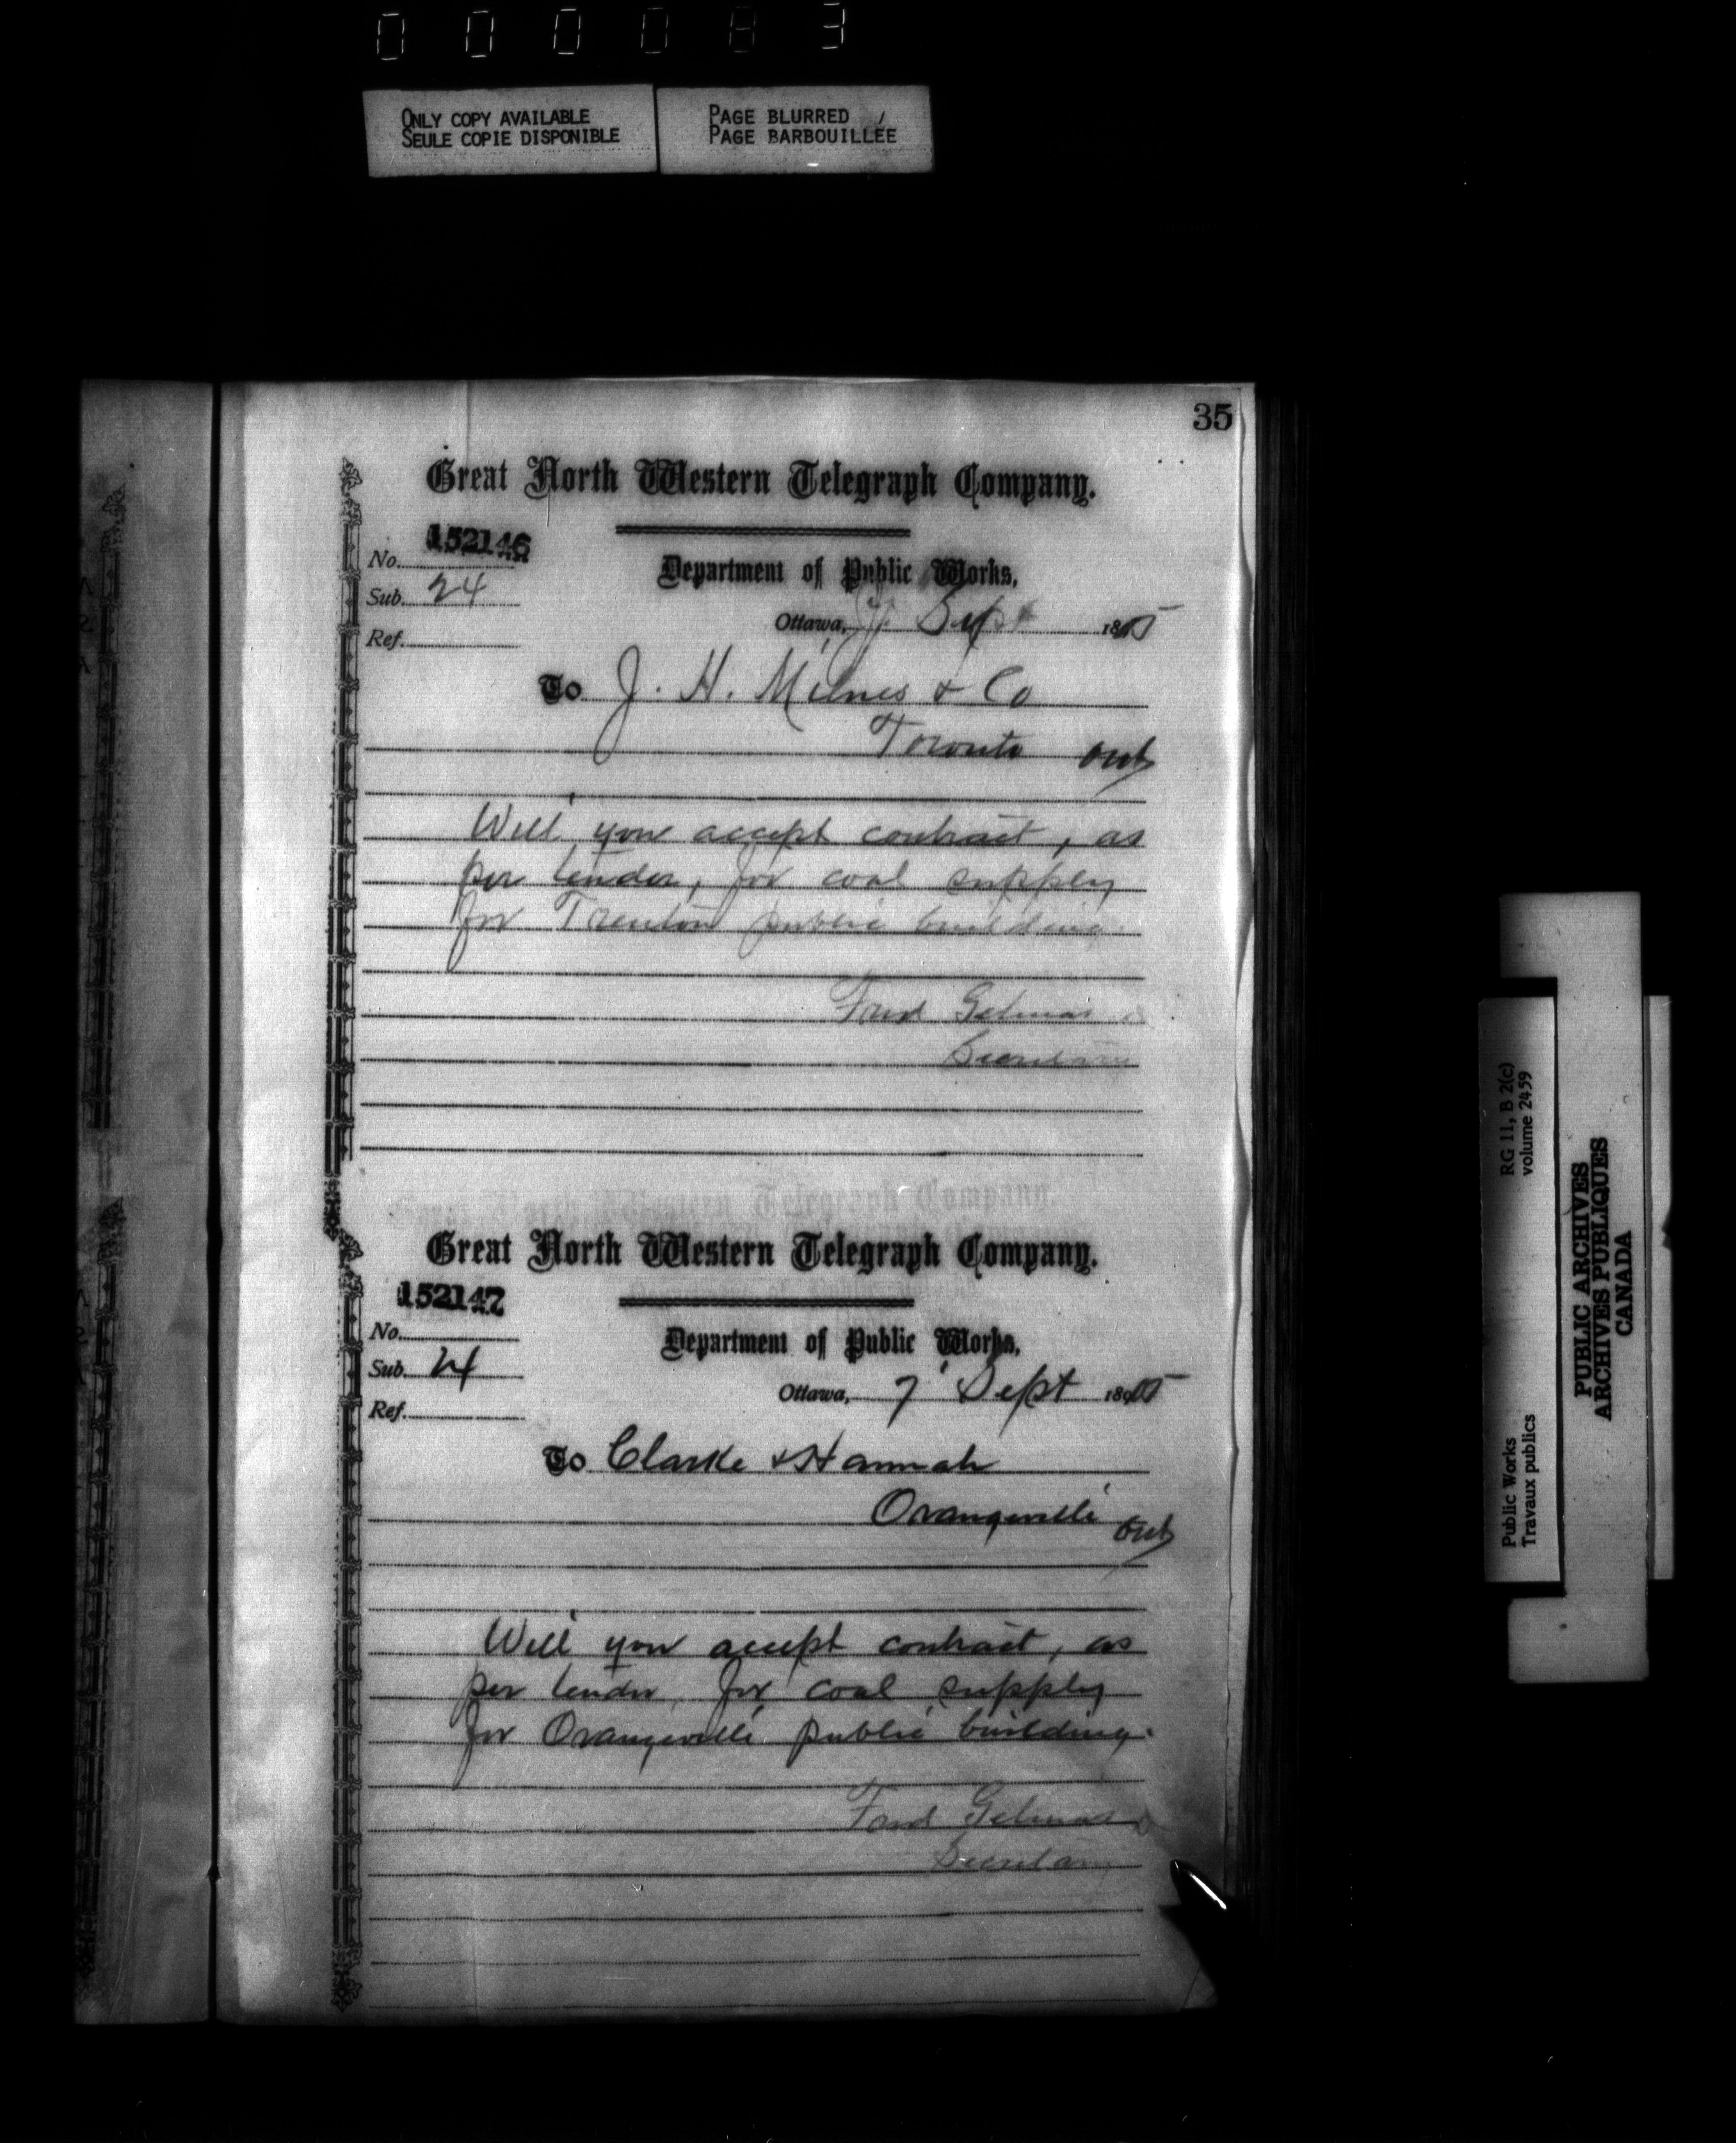 0 0 0 0 8 3
ONLY COPY AVAILABLE
SEULE COPIE DISPONIBLE
PAGE BLURRED
PAGE BARBOUILLÉE
35
Great North Western Telegraph Company.
No. 152146
Department of Public Works,
Sub. 24
Ottawa, 7 Sept 1895
Ref.
To J. H. Milnes & Co
Toronto Ont
Will you accept contract, as
per tender, for coal supply
for Trenton public building
Fred Gelinas
Secretary
Great North Western Telegraph Company.
152147
No.
Department of Public Works,
Sub. 24
Ottawa, 7 Sept 1895
Ref.
To Clarke & Hannah
Orangeville Ont
Will you accept contract, as
per tender, for coal supply
for Orangeville public building.
Fred Gelinas
Secretary
RG 11, B 2(c)
volume 2459
Public Works
Travaux publics
PUBLIC ARCHIVES
ARCHIVES PUBLIQUES
CANADA